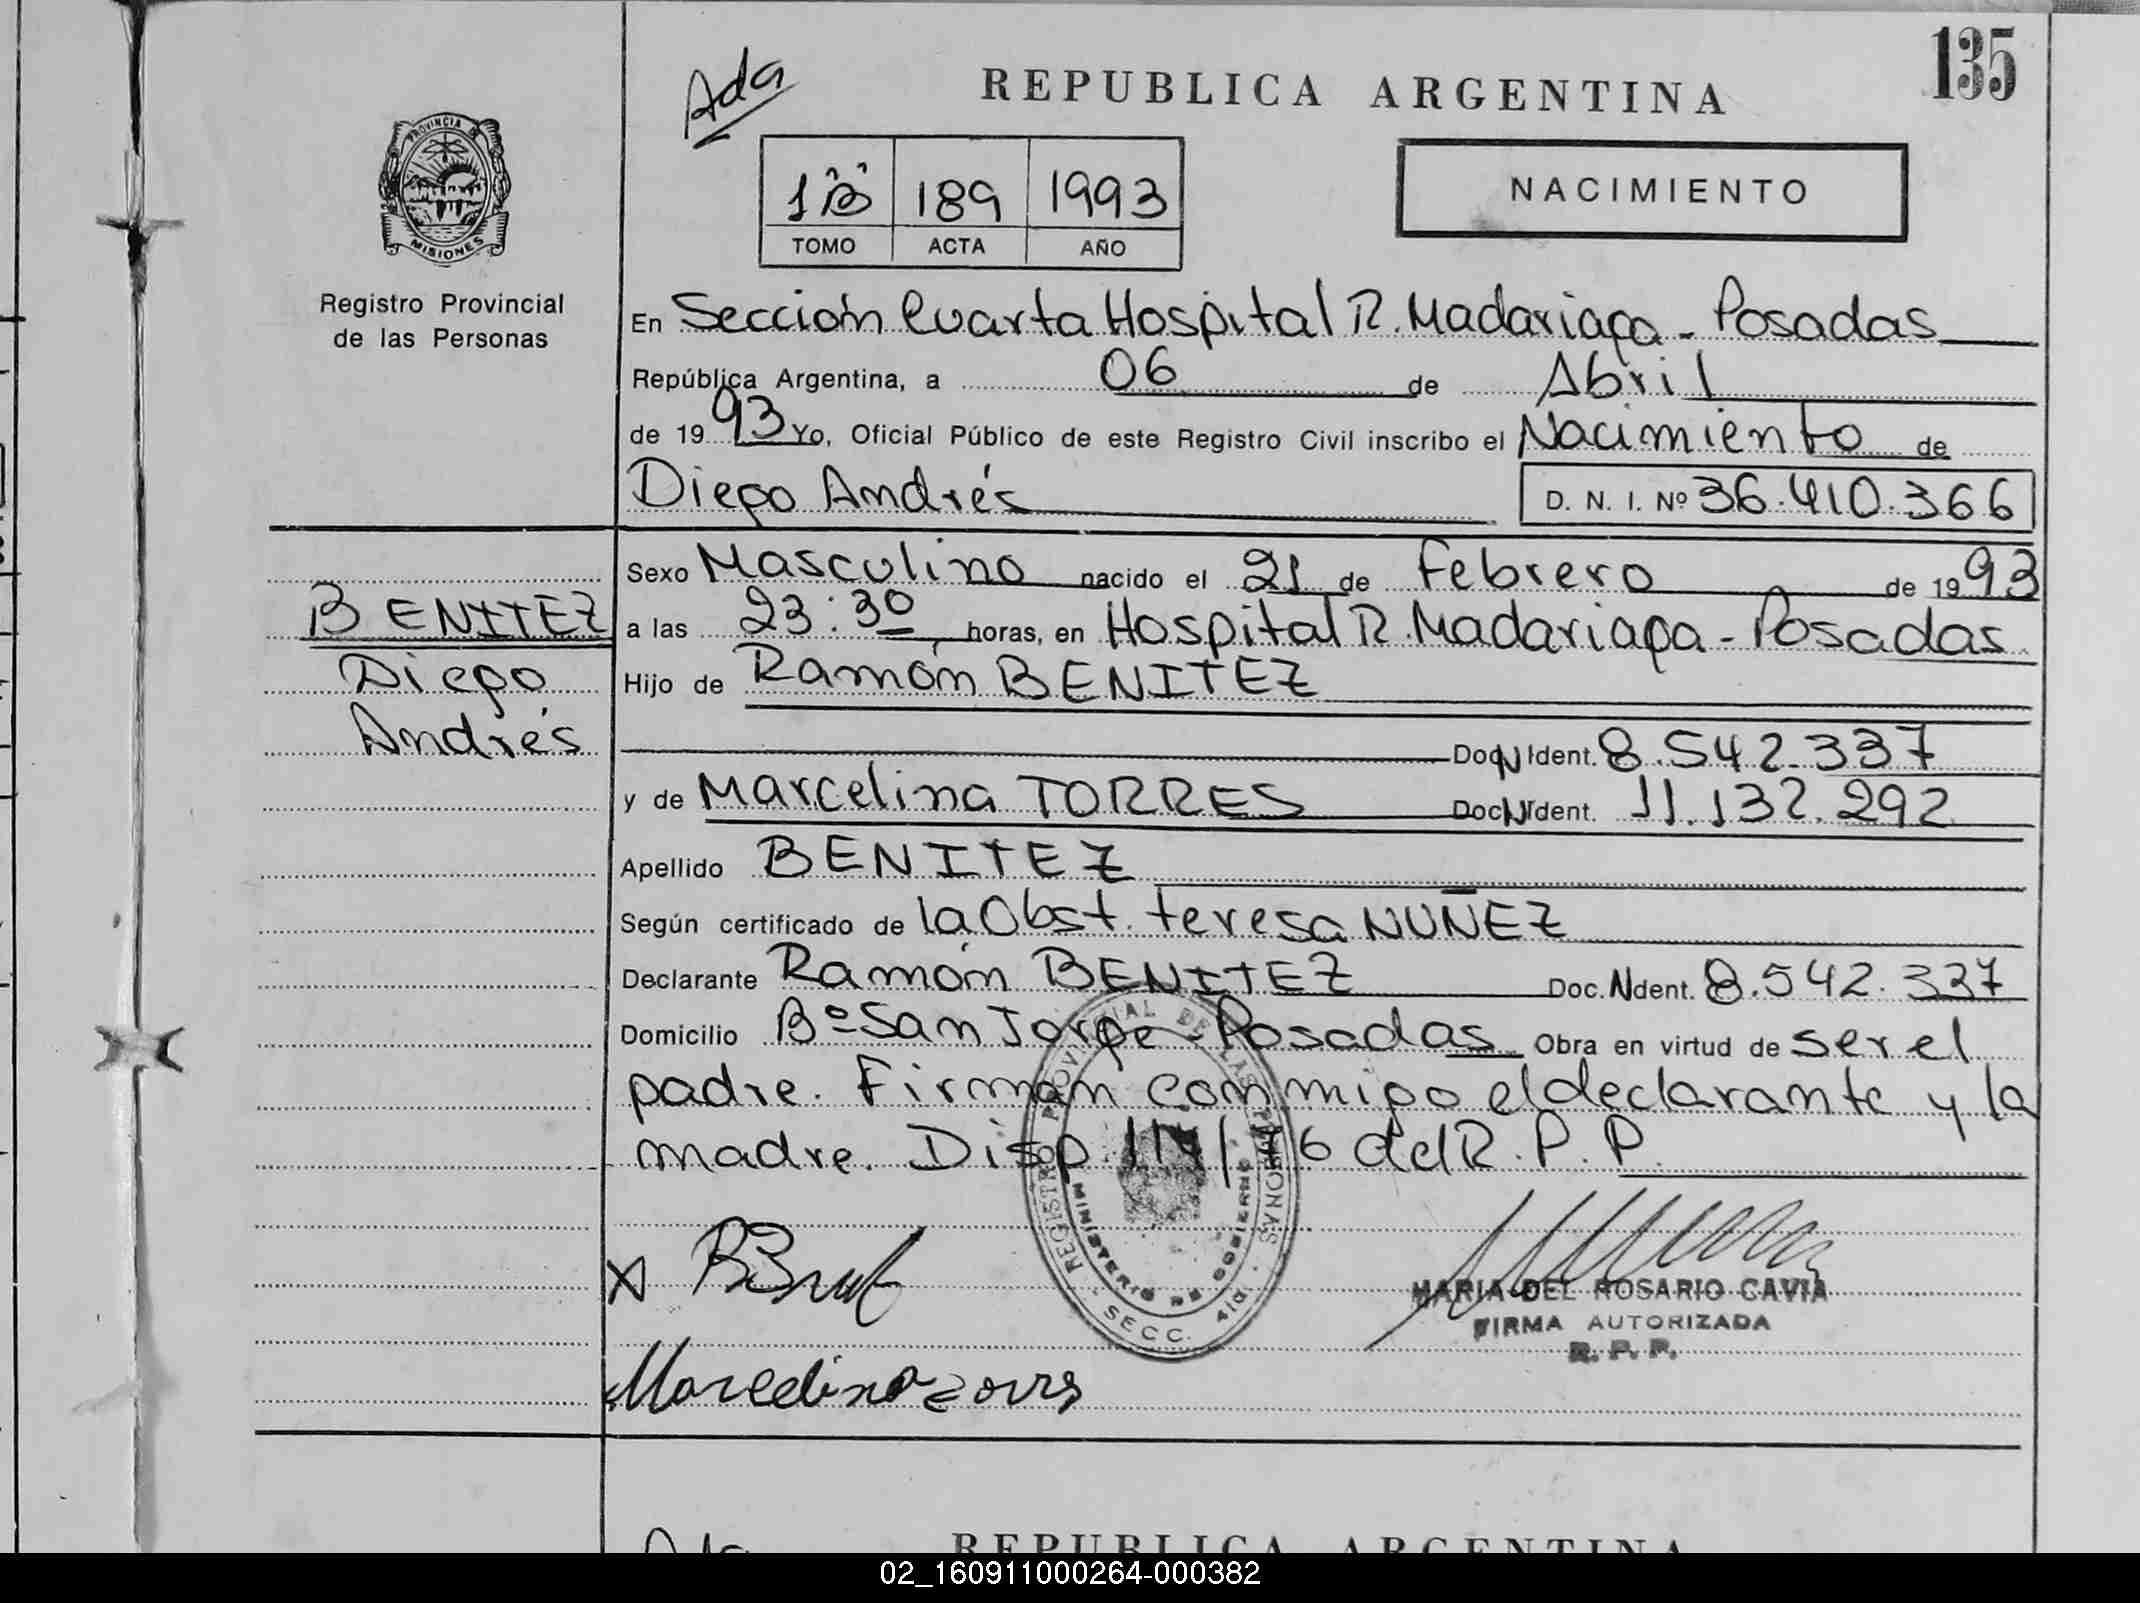 135
Ada
REPUBLICA ARGENTINA
PROVINCIA DE
MISIONES
1 "B" 189 1993
TOMO ACTA AÑO
NACIMIENTO
Registro Provincial
de las Personas
En Sección Cuarta Hospital R. Madariaga - Posadas
República Argentina, a 06 de Abril
de 1993 Yo, Oficial Público de este Registro Civil inscribo el Nacimiento de
Diego Andrés D. N. I. Nº 36.410.366
BENITEZ
Diego
Andrés
Sexo Masculino nacido el 21 de Febrero de 1993
a las 23:30 horas, en Hospital R. Madariaga - Posadas
Hijo de Ramón BENITEZ
Doc. N Ident. 8.542.337
y de Marcelina TORRES Doc. N Ident. 11.132.292
Apellido BENITEZ
Según certificado de la Obst. Teresa NUÑEZ
Declarante Ramón BENITEZ Doc. N Ident. 8.542.337
Domicilio Bº San Jorge - Posadas Obra en virtud de ser el
padre. Firman conmigo el declarante y la
madre. Disp. /76 del R.P.P.
REGISTRO PROVINCIAL DE LAS PERSONAS
MINISTERIO DE GOBIERNO
SECC. 4ta.
X
MARIA DEL ROSARIO CAVIA
FIRMA AUTORIZADA
R. P. P.
Marcelina
REPUBLICA ARGENTINA
02_160911000264-000382